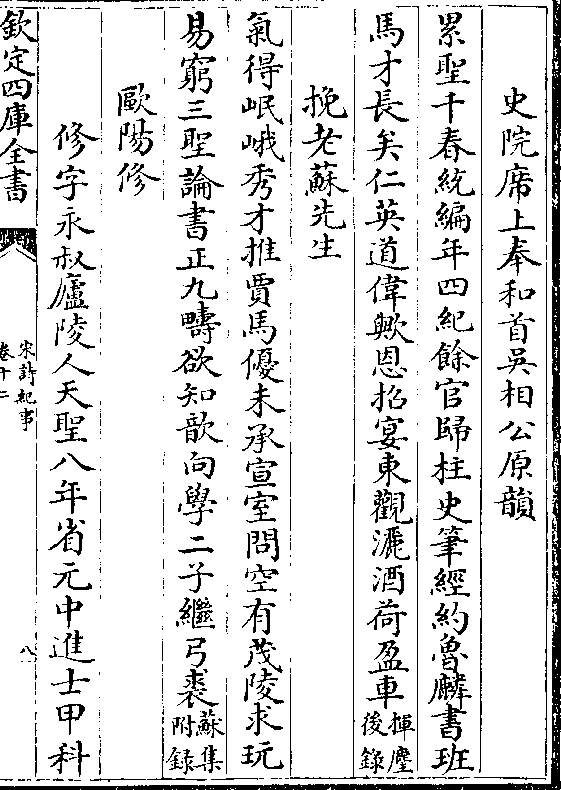 史院席上奉和首吳相公原韻
累聖千春統編年四紀餘官歸柱史筆經約魯麟書班
馬才長矣仁英道偉歟恩招宴東觀灑酒荷盈車揮麈
後錄
挽老蘇先生
氣得岷峨秀才推賈馬優未承宣室問空有茂陵求玩
易窮三聖論書正九疇欲知歆向學二子繼弓裘蘇集
附錄
歐陽修
修字永叔廬陵人天聖八年省元中進士甲科
欽定四庫全書
宋詩紀事
卷十二
八